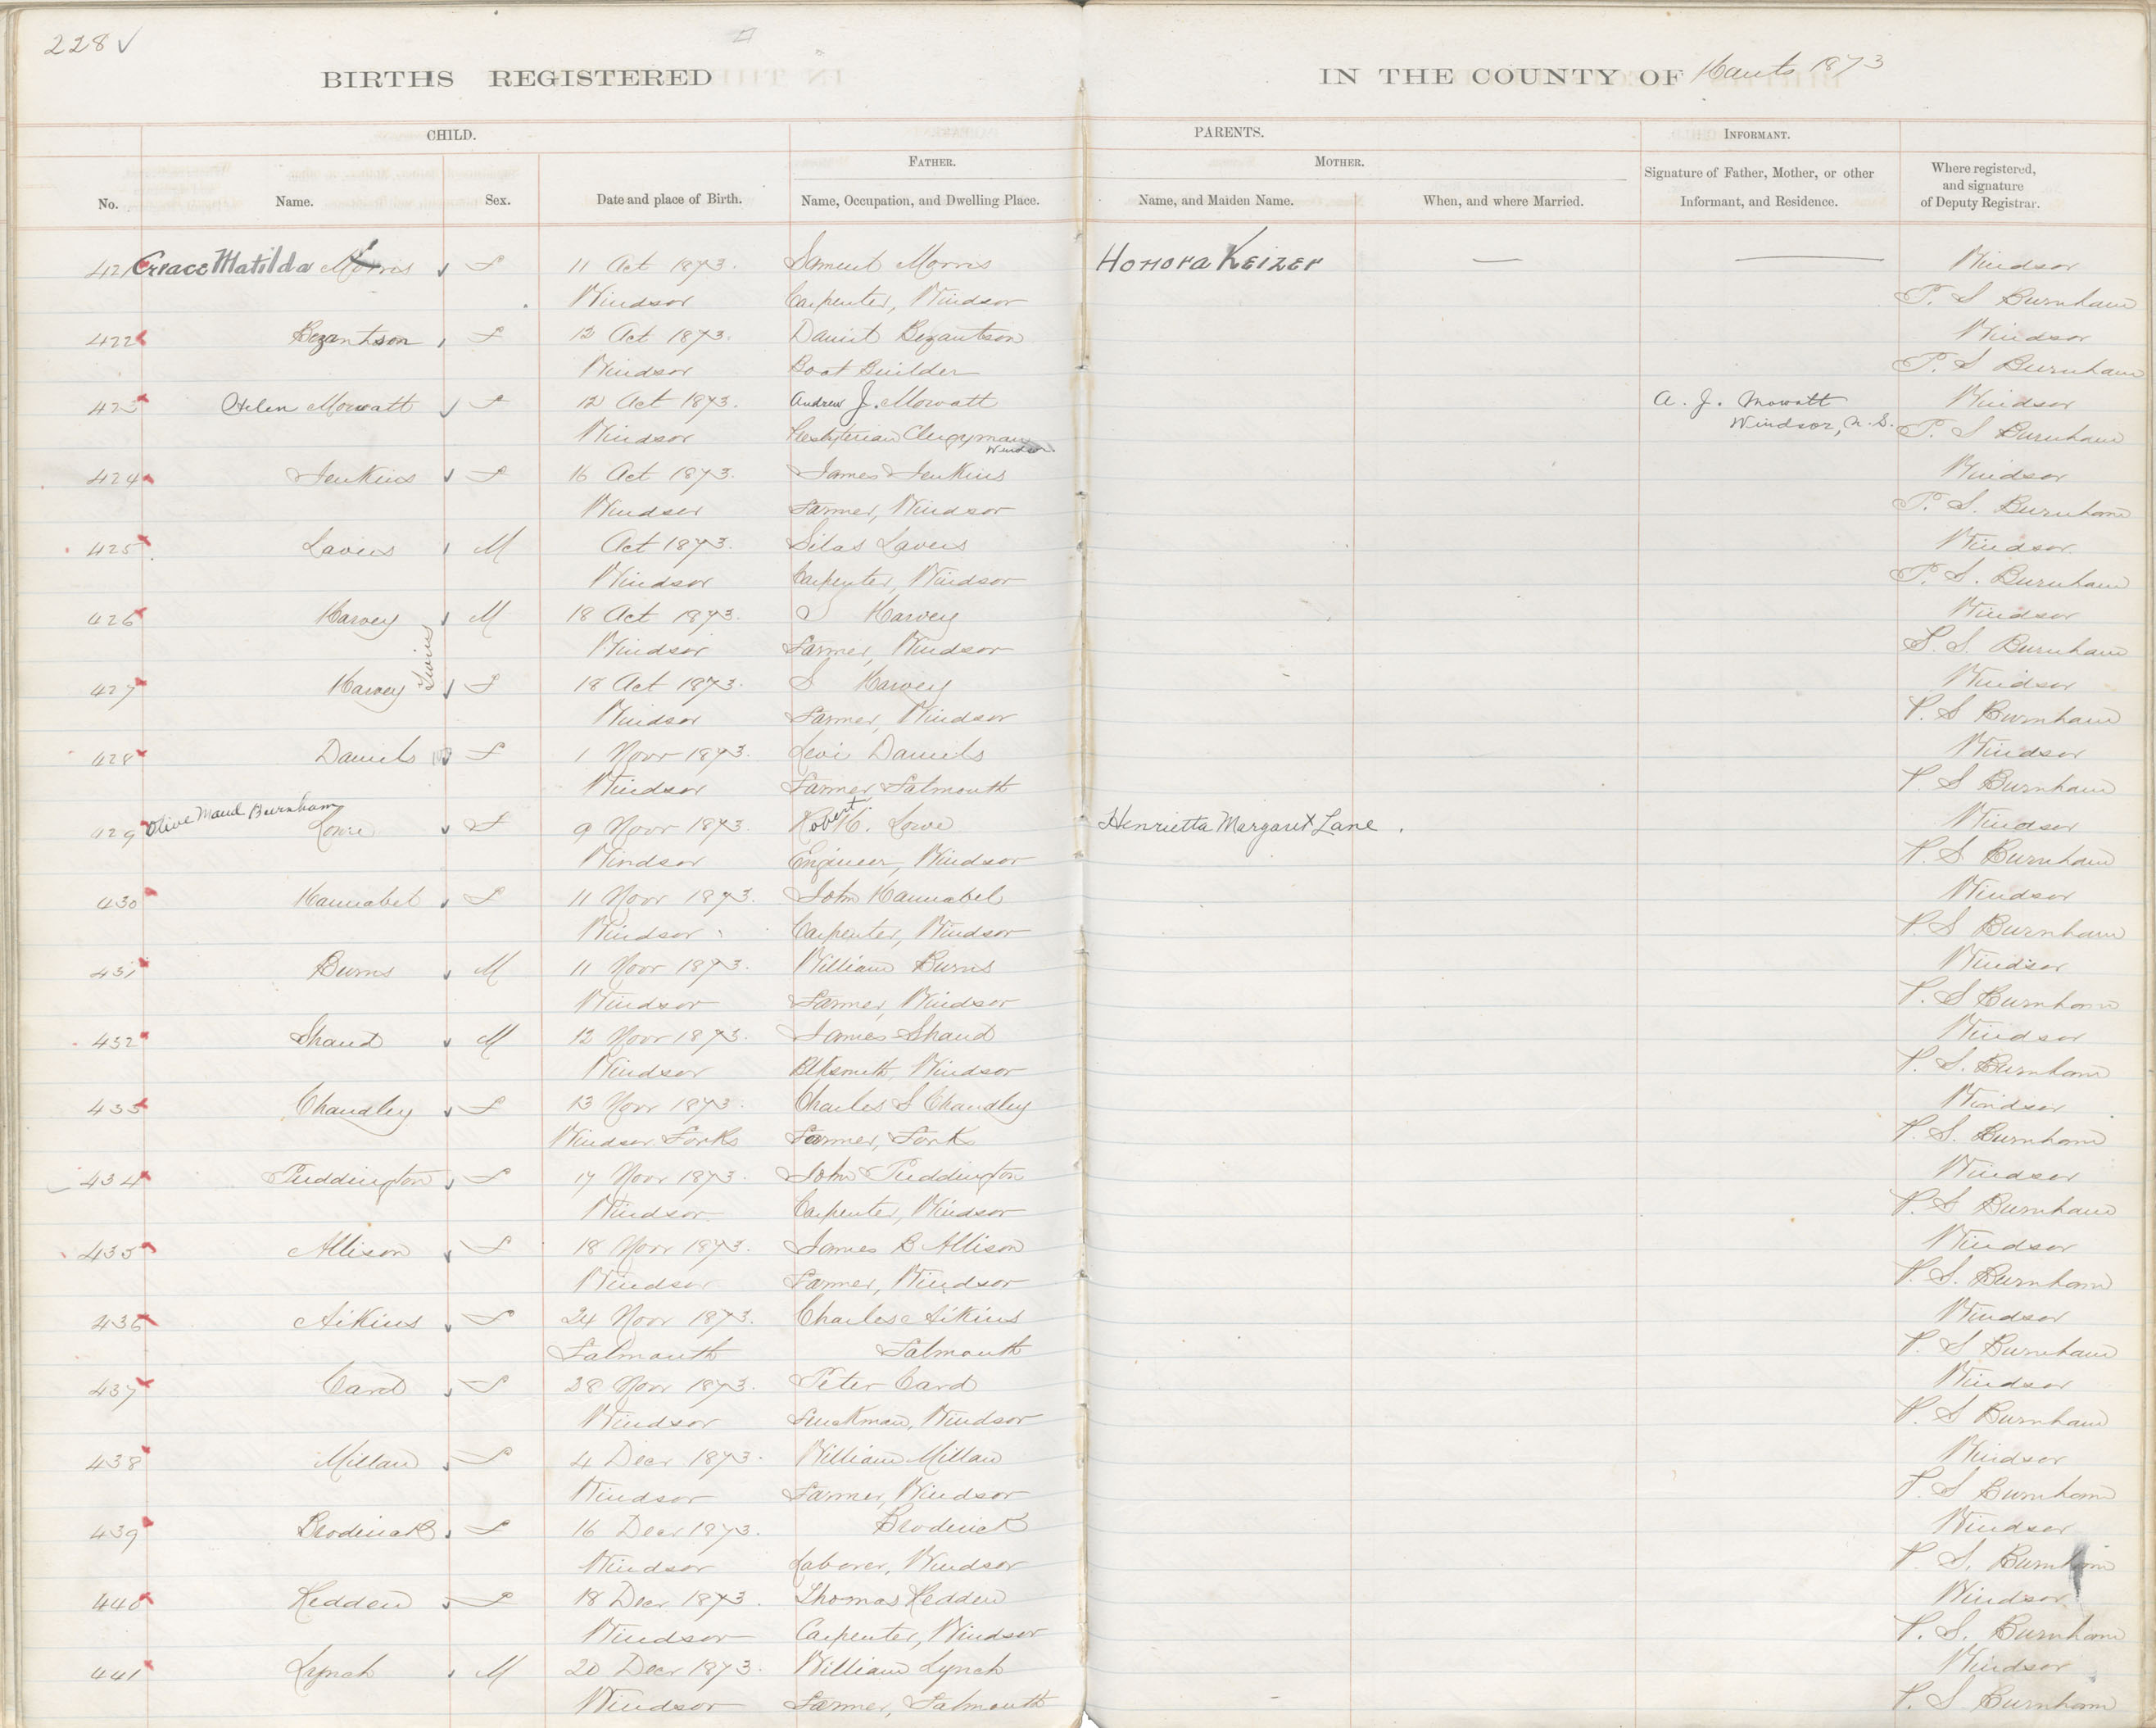 228 ✓
BIRTHS REGISTERED IN THE COUNTY OF Hants 1873
CHILD. PARENTS. INFORMANT.
FATHER. MOTHER.
No. Name. Sex. Date and place of Birth. Name, Occupation, and Dwelling Place. Name, and Maiden Name. When, and where Married. Signature of Father, Mother, or other Informant, and Residence. Where registered, and signature of Deputy Registrar.
421 Grace Matilda Morris F 11 Oct 1873. Samuel Morris Honora Keizer — — Windsor
Windsor Carpenter, Windsor P. S Burnham
422 Bezantson F 12 Oct 1873. Daniel Bezantson Windsor
Windsor Boat Builder P. S Burnham
423 Helen Mowatt F 12 Oct 1873. Andrew J. Mowatt A. J. Mowatt Windsor
Windsor Presbyterian Clergyman Windsor Windsor, N. S. P. S Burnham
424 Jenkins F 16 Oct 1873. James Jenkins Windsor
Windsor Farmer, Windsor P. S. Burnham
425 Lavers M Oct 1873. Silas Lavers Windsor
Windsor Carpenter, Windsor P. S. Burnham
426 Harvey M 18 Oct 1873. S Harvey Windsor
Twins
Windsor Farmer, Windsor P. S. Burnham
427 Harvey F 18 Oct 1873. S Harvey Windsor
Windsor Farmer, Windsor P. S Burnham
428 Daniels F 1 Novr 1873. Levi Daniels Windsor
Windsor Farmer Falmouth P. S Burnham
429 Olive Maud Burnham Lowe F 9 Novr 1873. Robert H. Lowe Henrietta Margaret Lane. Windsor
Windsor Engineer, Windsor P. S Burnham
430 Hannabel F 11 Novr 1873. John Hannabel Windsor
Windsor Carpenter, Windsor P. S Burnham
431 Burns M 11 Novr 1873. William Burns Windsor
Windsor Farmer, Windsor P. S Burnham
432 Shand M 12 Novr 1873. James Shand Windsor
Windsor Blksmith, Windsor P. S. Burnham
433 Chandley F 13 Novr 1873. Charles S Chandley Windsor
Windsor Forks Farmer, Forks P. S. Burnham
434 Puddington F 17 Novr 1873. John Puddington Windsor
Windsor Carpenter, Windsor P. S Burnham
435 Allison F 18 Novr 1873. James B Allison Windsor
Windsor Farmer, Windsor P. S. Burnham
436 Aikins F 24 Novr 1873. Charles Aikins Windsor
Falmouth Falmouth P. S Burnham
437 Card F 28 Novr 1873. Peter Card Windsor
Windsor Truckman, Windsor P. S Burnham
438 Millan F 4 Decr 1873. William Millan Windsor
Windsor Farmer, Windsor P. S Burnham
439 Broderick F 16 Decr 1873. Broderick Windsor
Windsor Laborer, Windsor P. S. Burnham
440 Redden F 18 Decr 1873. Thomas Redden Windsor
Windsor Carpenter, Windsor P. S. Burnham
441 Lynch M 20 Decr 1873. William Lynch Windsor
Windsor Farmer, Falmouth P. S Burnham